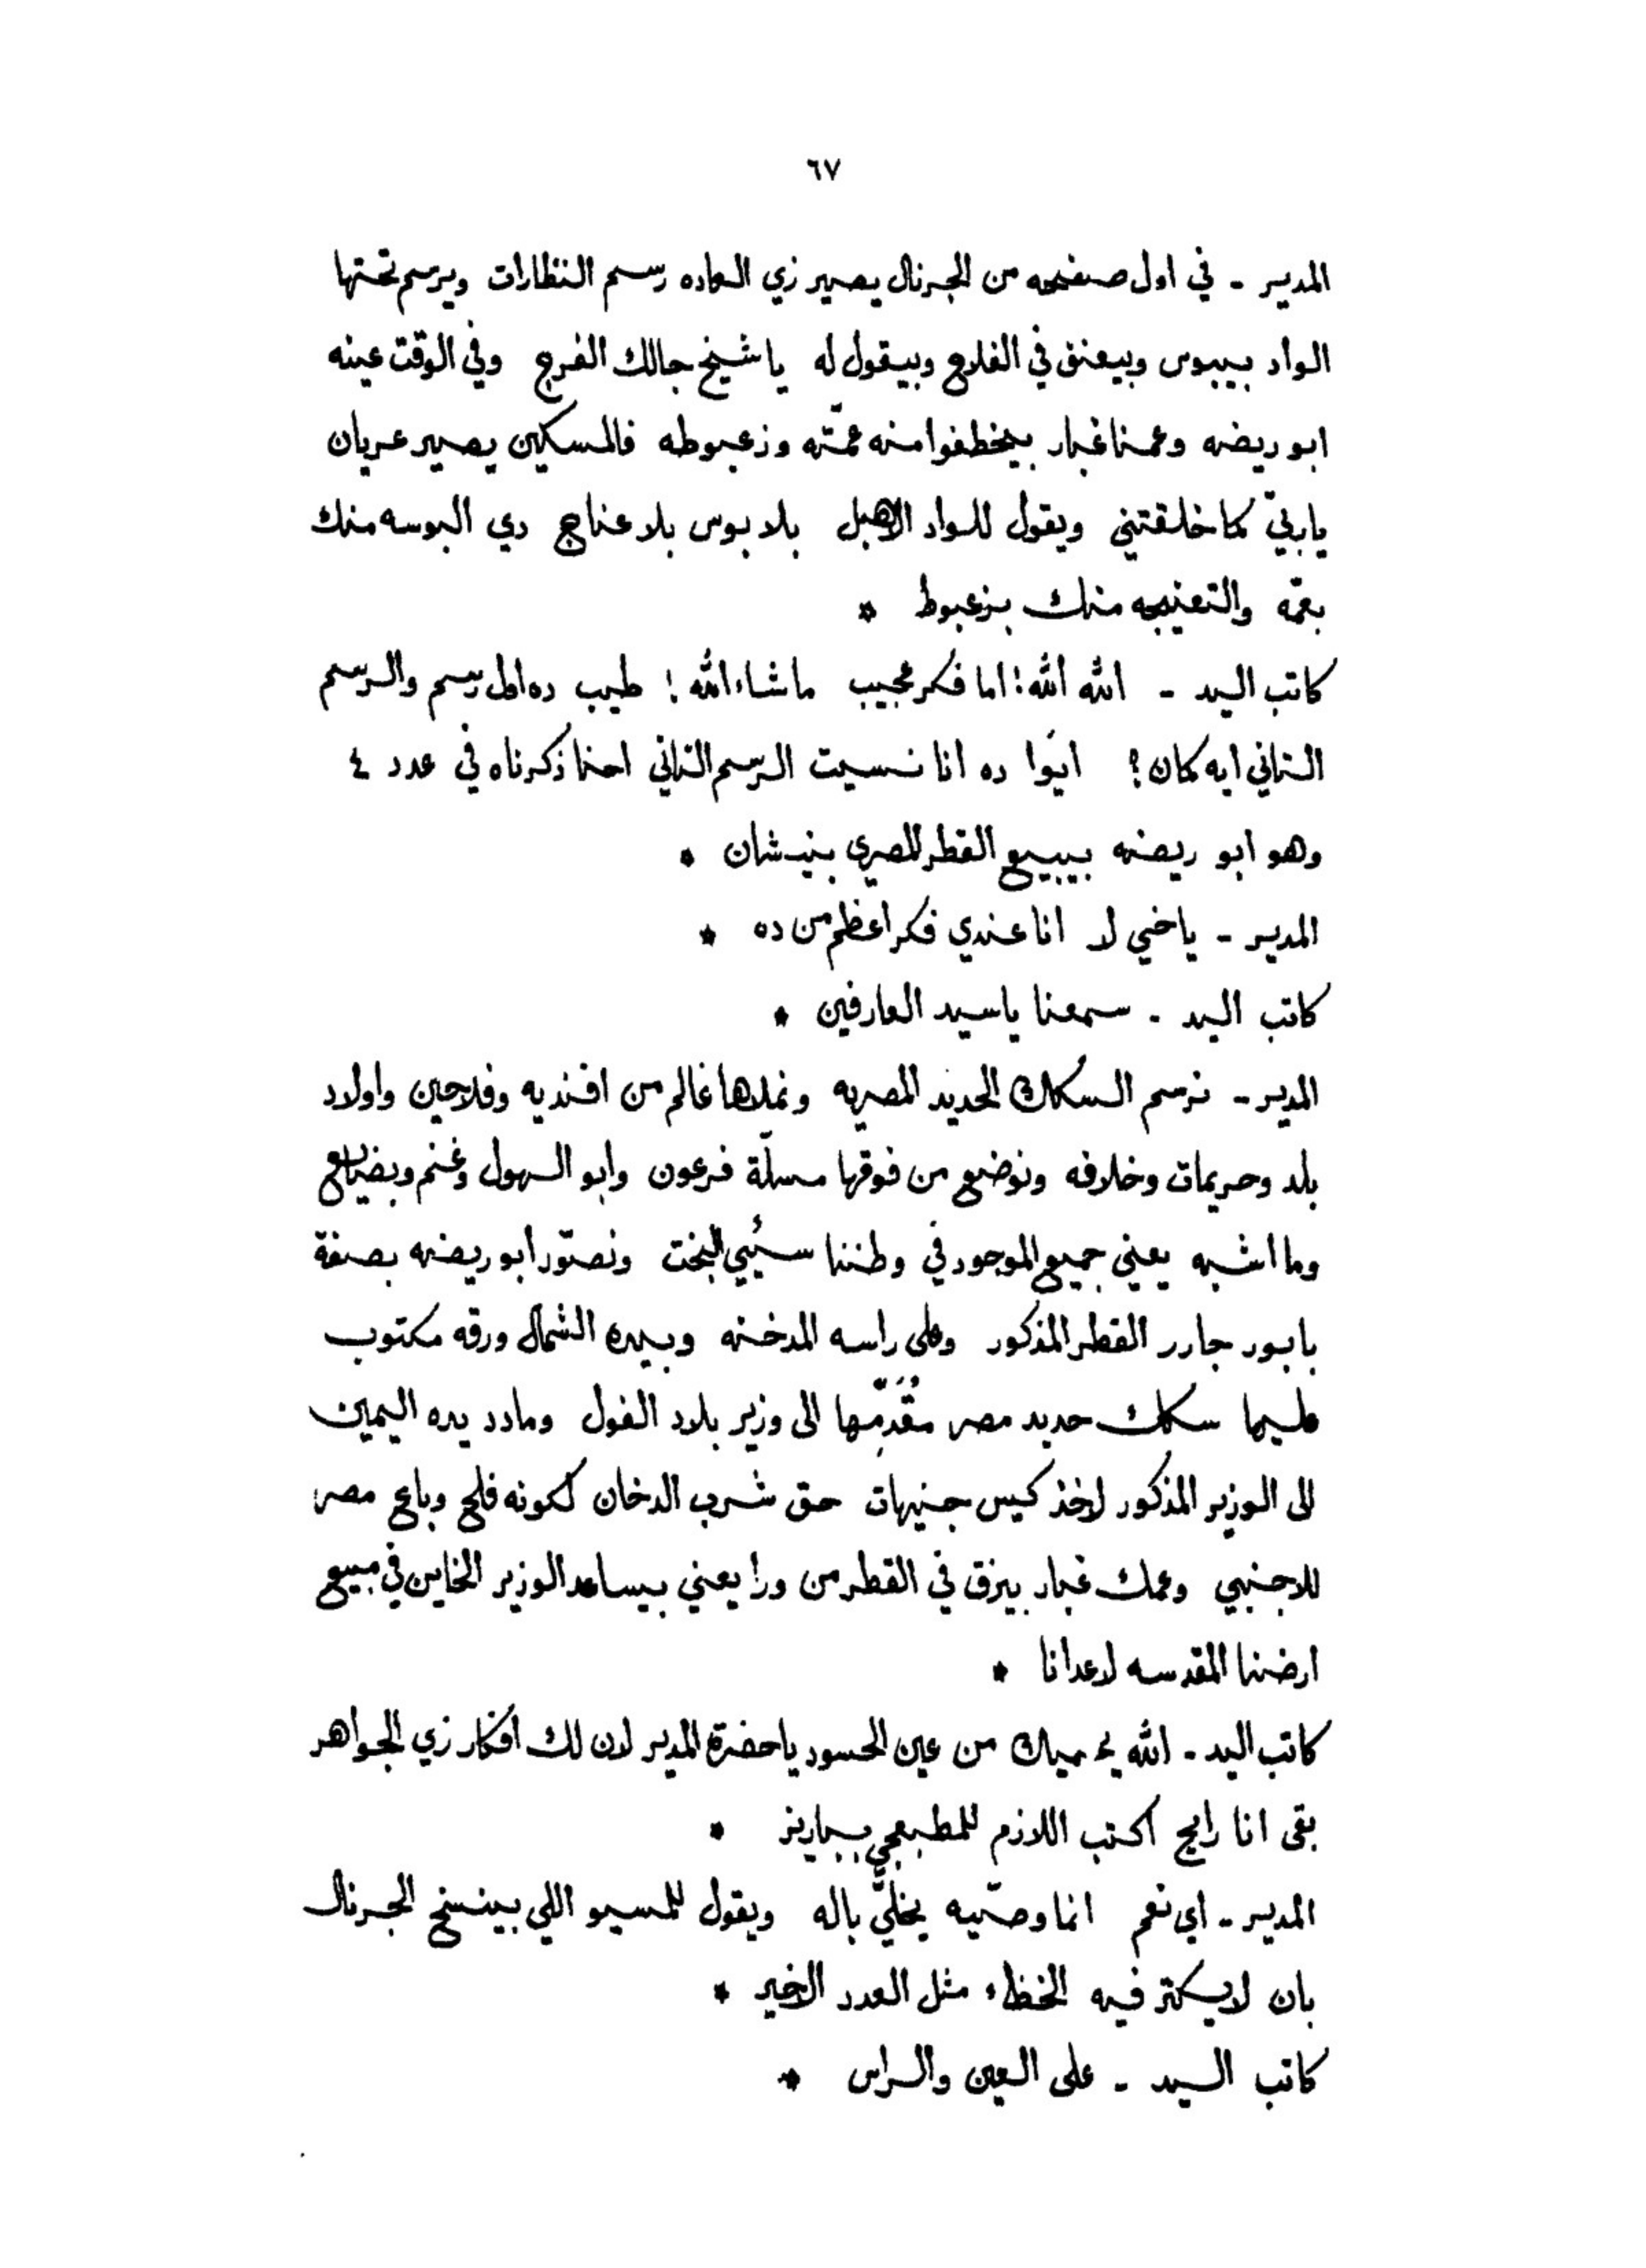 ٦٧
المدير - في اول صفحه من الجرنال يصير زي العاده رسم النظارات ويرسم تحتها
الواد بيبوس وبيعنق في الفلاح وبيقول له يا شيخ جالك الفرج وفي الوقت عينه
ابو ريضه وعمنا غبار بيخطفوا منه عمّته وزعبوطه فالمسكين يصير عريان
يا ربّي كما خلقتني ويقول للواد الاهبل بلا بوس بلا عناج دي البوسه منك
بعمّه والتعنيجه منك بزعبوط *
كاتب اليد - الله الله! اما فكر عجيب ما شاء الله! طيب ده اول رسم والرسم
التاني ايه كان؟ ايَوا ده انا نسيت الرسم التاني احنا ذكرناه في عدد ٤
وهو ابو ريضه بيبيع القطر المصري بنيشان *
المدير - ياخي لا انا عندي فكر اعظم من ده *
كاتب اليد - سمعنا يا سيد العارفين *
المدير - نرسم السكك الحديد المصريه ونملاها عالم من افنديه وفلاحين واولاد
بلد وحريمات وخلافه ونوضع من فوقها مسلّة فرعون وابو الهول وغنم وبضايع
وما اشبه يعني جميع الموجود في وطننا سيُي البخت ونصوّر ابو ريضه بصفة
بابور جارر القطر المذكور وعلى راسه المدخنه وبيده الشمال ورقه مكتوب
عليها سكك حديد مصر مقُدَمّها الى وزير بلاد الفول ومادد يده اليمين
الى الوزير المذكور لاخذ كيس جنيهات حق شرب الدخان لكونه فلح وباع مصر
للاجنبي وعمك غبار بيزق في القطر من ورا يعني بيساعد الوزير الخاين في مبيع
ارضنا المقدسه لاعدانا *
كاتب اليد - الله يحميك من عين الحسود يا حضرة المدير لان لك افكار زي الجواهر
بقى انا رايح اكتب اللازم للمطبعجي بباريز *
المدير - اي نعم انما وصّيه يخلّي باله ويقول للمسيو اللي بينسخ الجرنال
بان لا يكتر فيه الخطاء مثل العدد الاخير *
كاتب اليد - على العين والراس *